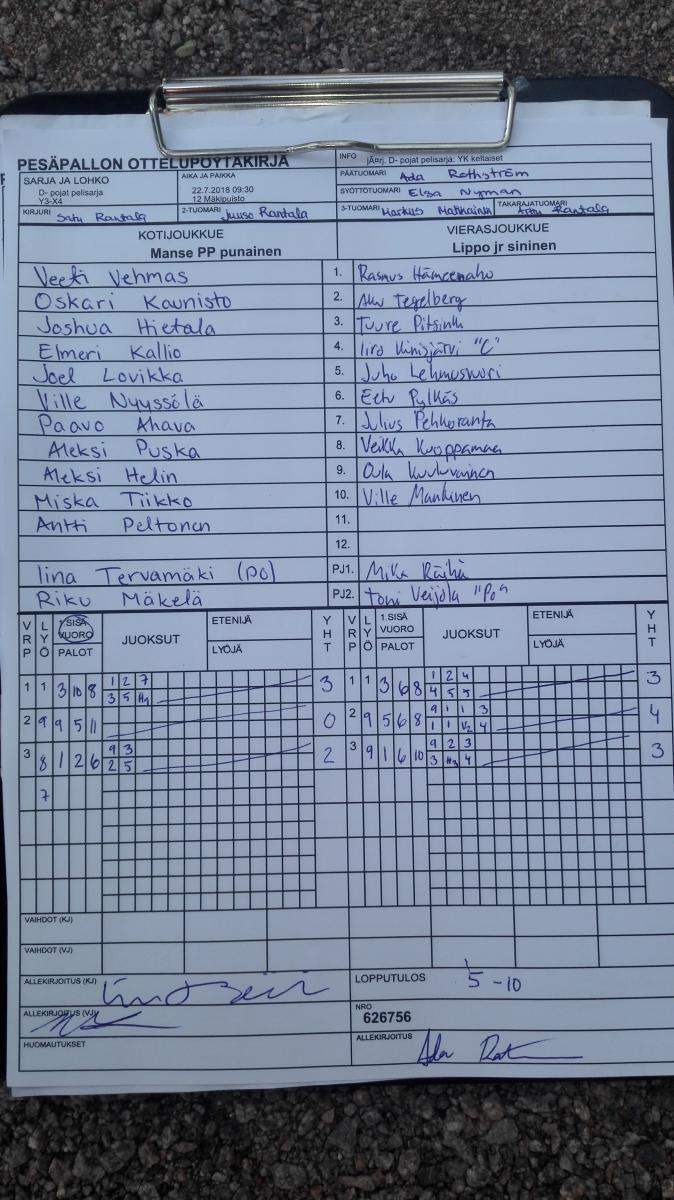 PESÄPALLON OTTELUPÖYTÄKIRJA
INFO jÄ¤rj. D- pojat pelisarja: YK keltaiset
SARJA JA LOHKO
D- pojat pelisarja
Y3-X4
AIKA JA PAIKKA
22.7.2018 09:30
12 Mäkipuisto
PÄÄTUOMARI Ada Rothström
SYÖTTÖTUOMARI Elsa Nyman
KIRJURI Satu Rantala
2-TUOMARI Juuso Rantala
3-TUOMARI Markus
TAKARAJATUOMARI Rantala
KOTIJOUKKUE
Manse PP punainen
VIERASJOUKKUE
Lippo jr sininen
Veeti Vehmas 1. Rasmus Hämeenaho
Oskari Kaunisto 2. Aku Tegelberg
Joshua Hietala 3. Tuure
Elmeri Kallio 4. Iiro Kinisjärvi "C"
Joel Lovikka 5. Juho Lehmusvuori
Ville Nyyssölä 6. Eetu Pylkäs
Paavo Ahava 7. Julius Pehkoranta
Aleksi Puska 8. Veikka Kuoppamaa
Aleksi Helin 9. Oula Kuukuvainen
Miska Tiikko 10. Ville Manninen
Antti Peltonen 11.
12.
Iina Tervamäki (PO) PJ1. Mika Räihä
Riku Mäkelä PJ2. Toni Veijola "Po"
VRP LYÖ 1.SISÄ VUORO PALOT JUOKSUT ETENIJÄ LYÖJÄ YHT
VRP LYÖ 1.SISÄ VUORO PALOT JUOKSUT ETENIJÄ LYÖJÄ YHT
1 1 3 10 8 1 2 7 3 1 1 3 6 8 1 2 4 3
3 5 4 5 5
2 9 9 5 11 0 2 9 5 6 8 9 1 1 3 4
1 1 V2 4
3 8 1 2 6 9 3 2 3 9 1 6 10 9 2 3 3
2 5 3 4
7
VAIHDOT (KJ)
VAIHDOT (VJ)
ALLEKIRJOITUS (KJ)
LOPPUTULOS 5 - 10
ALLEKIRJOITUS (VJ)
NRO
626756
HUOMAUTUKSET
ALLEKIRJOITUS Ada